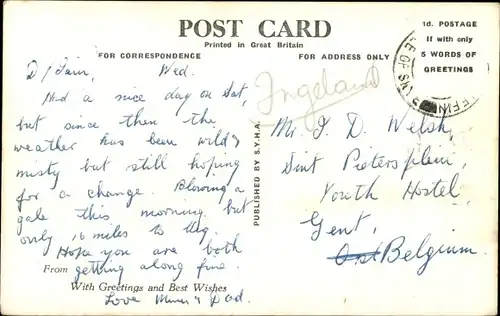 POST CARD
Printed in Great Britain
FOR CORRESPONDENCE
FOR ADDRESS ONLY
1d. POSTAGE
If with only
5 WORDS OF
GREETINGS
D/ Iain, Wed.
Had a nice day on Sat,
but since then the
weather has been wild &
misty but still hoping
for a change. Blowing a
gale this morning. but
only 16 miles to
Hope you are both
From getting along fine.
With Greetings and Best Wishes
Love Mum & Dad.
PUBLISHED BY S.Y.H.A.
Ingeland
Mr. I. D. Welsh,
Sint Pietersplein,
Youth Hostel,
Gent,
Ost Belgium.